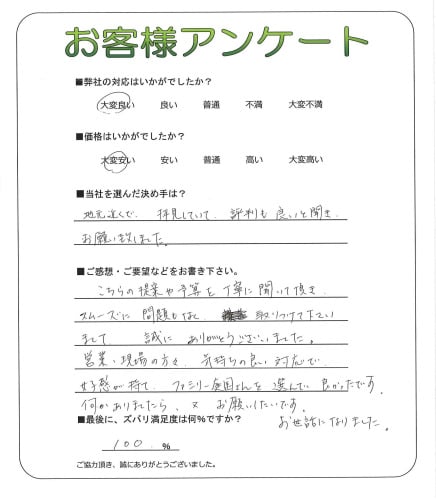 お客様アンケート
■弊社の対応はいかがでしたか？
大変良い 良い 普通 不満 大変不満
■価格はいかがでしたか？
大変安い 安い 普通 高い 大変高い
■当社を選んだ決め手は？
地元近くで、拝見していて、評判も良いと聞き、
お願い致しました。
■ご感想・ご要望などをお書き下さい。
こちらの提案や予算を丁寧に聞いて頂き、
スムーズに問題もなく、取りつけて下さい
まして 誠に ありがとうございました。
営業・現場の方々、気持ちの良い対応で、
好感が持て、ファミリー庭園さんを選んで良かったです。
何かありましたら、又 お願いしたいです。
お世話になりました。
■最後に、ズバリ満足度は何%ですか？
100 %
ご協力頂き、誠にありがとうございました。